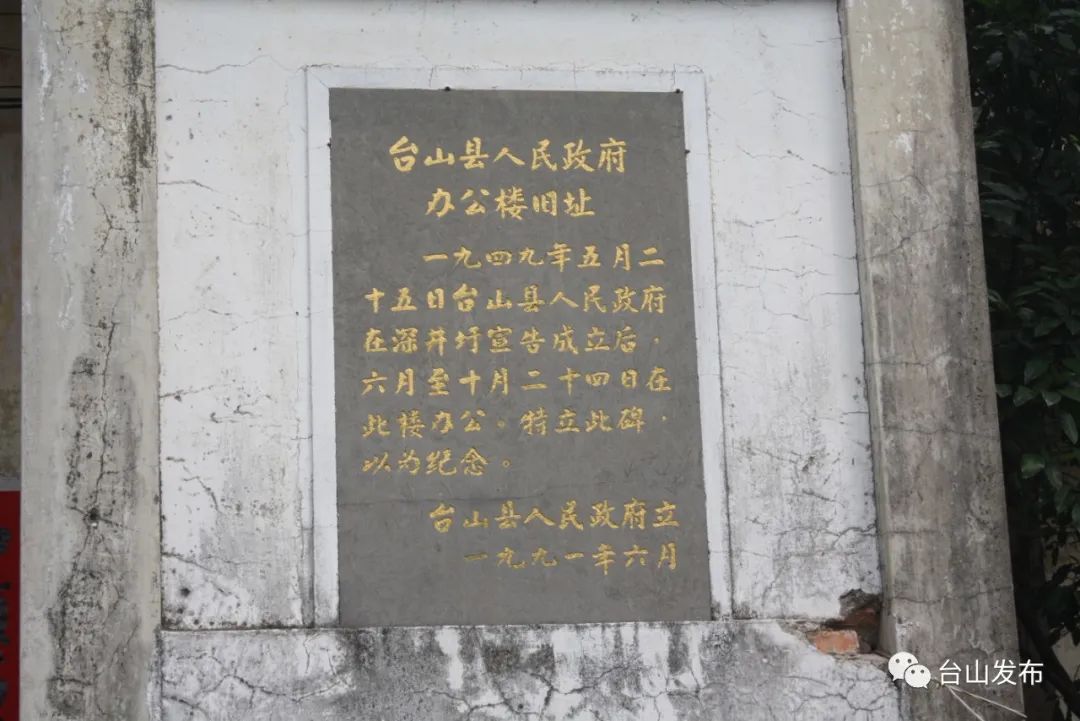 台山县人民政府
办公楼旧址
一九四九年五月二
十五日台山县人民政府
在深井圩宣告成立后，
六月至十月二十四日在
此楼办公。特立此碑，
以为纪念。
台山县人民政府立
一九九一年六月
台山发布